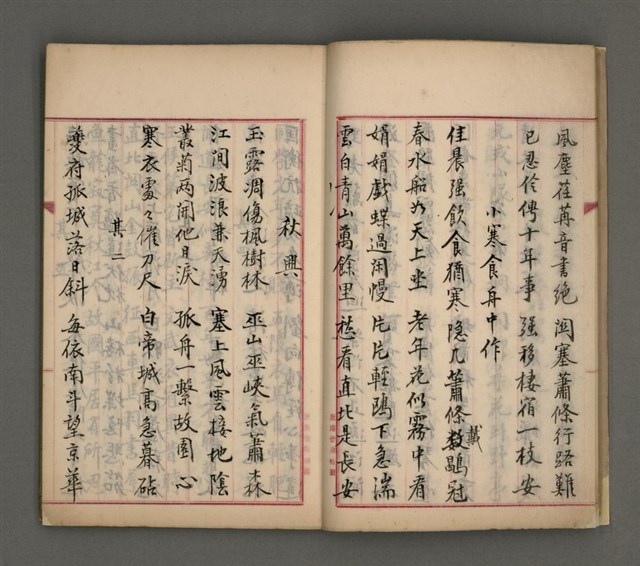 風塵荏苒音書絕 關塞蕭條行路難
已忍伶俜十年事 強移棲宿一枝安
小寒食舟中作
佳晨強飲食猶寒 隱几蕭條戴鶡冠
春水船如天上坐 老年花似霧中看
娟娟戲蝶過閑幔 片片輕鷗下急湍
雲白青山萬餘里 愁看直北是長安
秋興
玉露凋傷楓樹林 巫山巫峽氣蕭森
江間波浪兼天湧 塞上風雲接地陰
叢菊兩開他日淚 孤舟一繫故園心
寒衣處々催刀尺 白帝城高急暮砧
其二
夔府孤城落日斜 每依南斗望京華